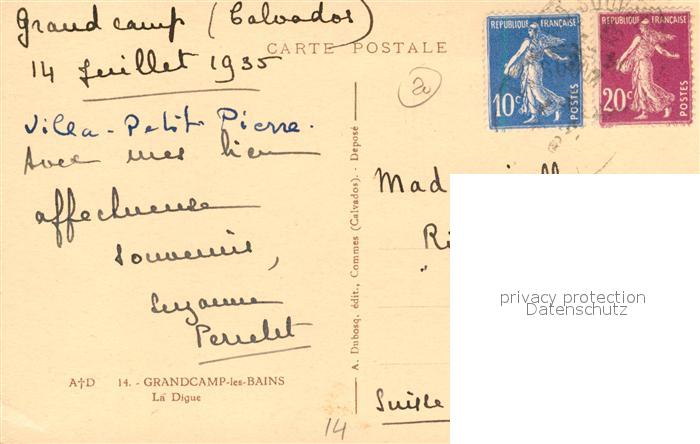 Grandcamp (Calvados)
14 Juillet 1935
CARTE POSTALE
Villa - Petit Pierre.
Avec mes bien
affectueux
souvenirs,
Suzanne
Perrelet
A†D 14. - GRANDCAMP-les-BAINS
La Digue
14
A. Dubosq. édit., Commes (Calvados). - Déposé
REPUBLIQUE FRANÇAISE
10c POSTES
REPUBLIQUE FRANÇAISE
20c POSTES
Suisse
privacy protection
Datenschutz